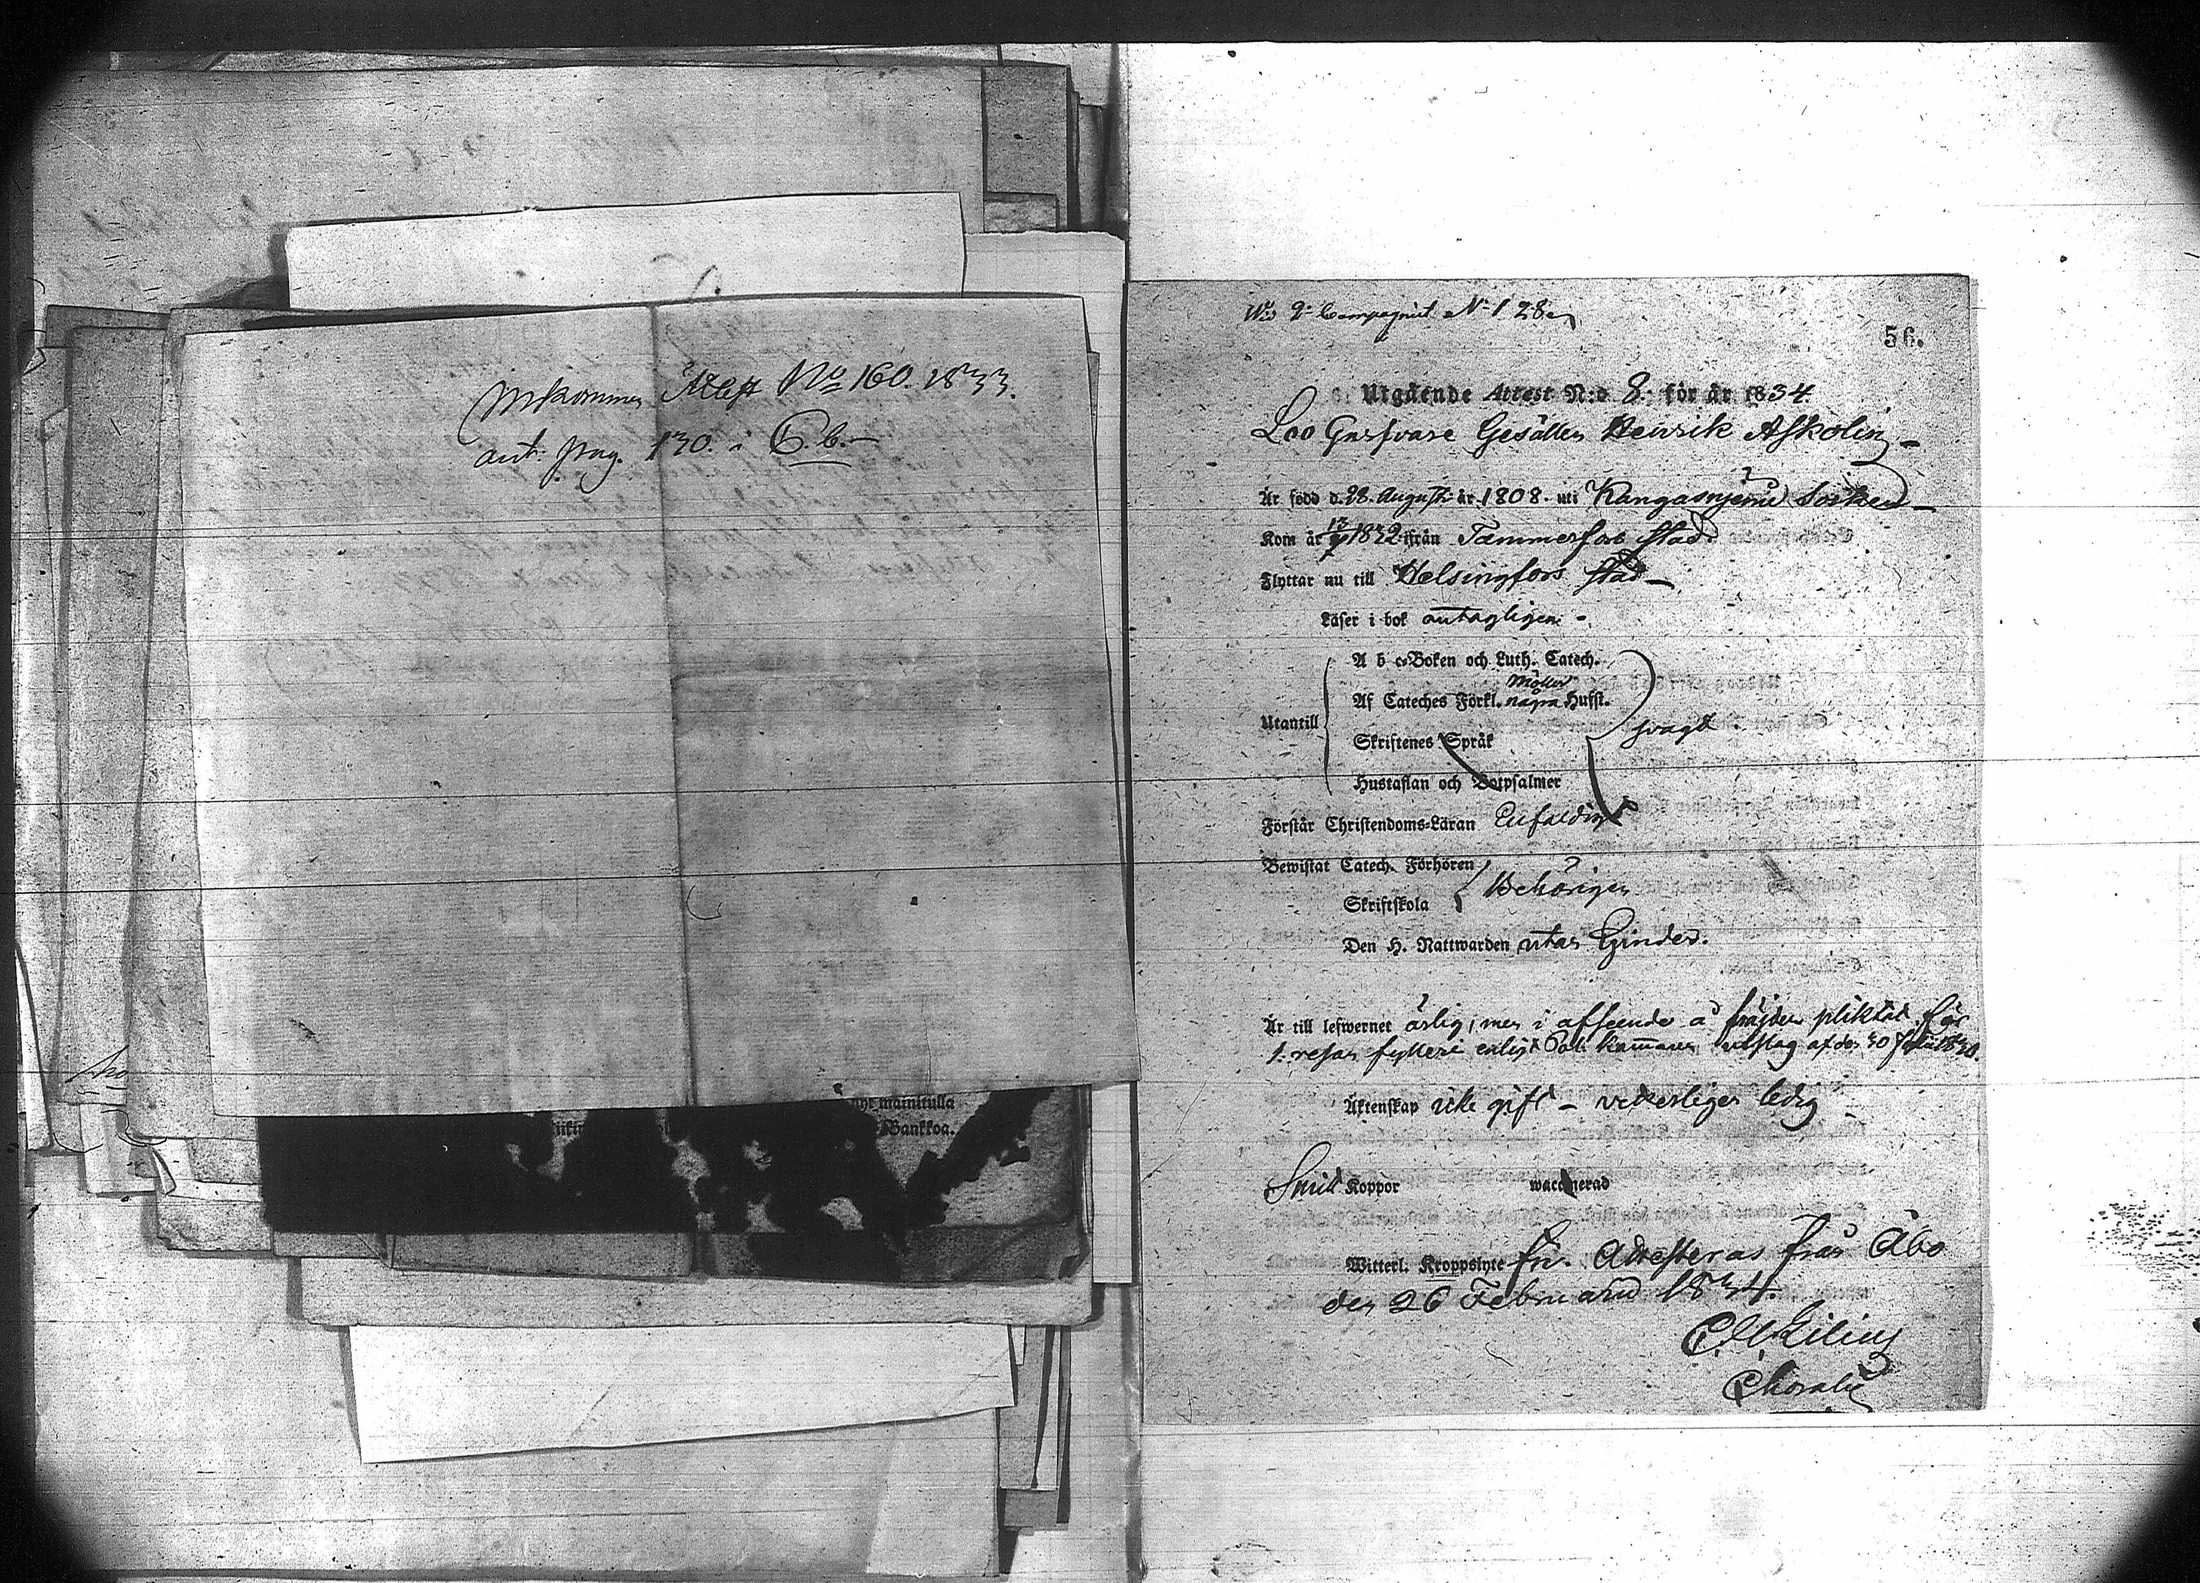 Inkommen Attest No 160. 1833.
ant: pag. 130. i C. b.
mainittulla
Bankkoa.
Wid 2: Compagniet N:1 28
56.
Utgående Attest N:o 8. för år 1834
Garfvare Gesällen Henrik Askolin
Är född d. 28. Augusti år 1808. uti Kangasnjemi Socken
Kom år 1832 ifrån Tammerfors stad
Flyttar nu till Helsingfors stad
Läser i bok antagligen
A b c-Boken och Luth. Catech.
Möller
Af Cateches Förkl. några Hufst.
Utantill
svagt
Skriftenes Språk
Hustaflan och Botpsalmer
Förstår Christendoms-Läran Enfaldigt
Bewistat Catech. Förhören
Behörigen
Skriftskola
Den H. Nattwarden utan hinder.
Är till lefwernet ärlig, men i afseende å fräjden pliktat för
1. resan fylleri enligt kammarens utslag af den 30
Äktenskap icke gift – veterligen ledig
Smitt Koppor waccinerad
Witterl. Kroppslyte fri. Attesteras från Åbo
den 26 Februarii 1834.